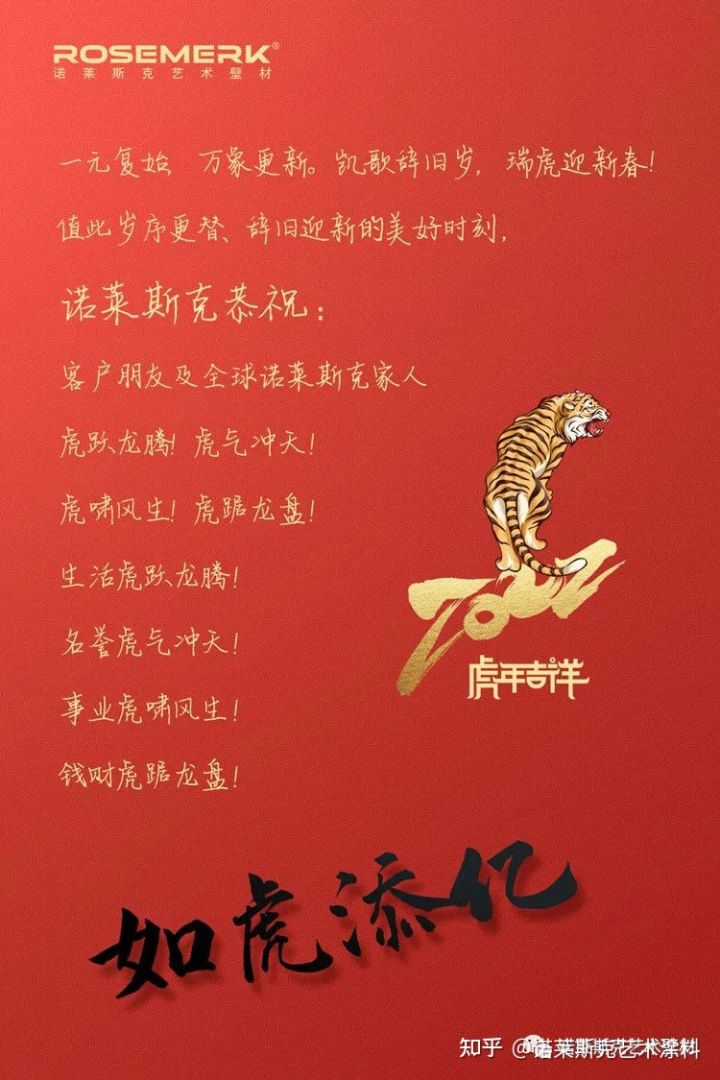 ROSEMERK®
诺莱斯克艺术壁材
一元复始、万象更新。凯歌辞旧岁，瑞虎迎新春！
值此岁序更替、辞旧迎新的美好时刻，
诺莱斯克恭祝：
客户朋友及全球诺莱斯克家人
虎跃龙腾！虎气冲天！
虎啸风生！虎踞龙盘！
生活虎跃龙腾！
名誉虎气冲天！
事业虎啸风生！
钱财虎踞龙盘！
2022
虎年吉祥
如虎添亿
知乎 @诺莱斯克艺术涂料